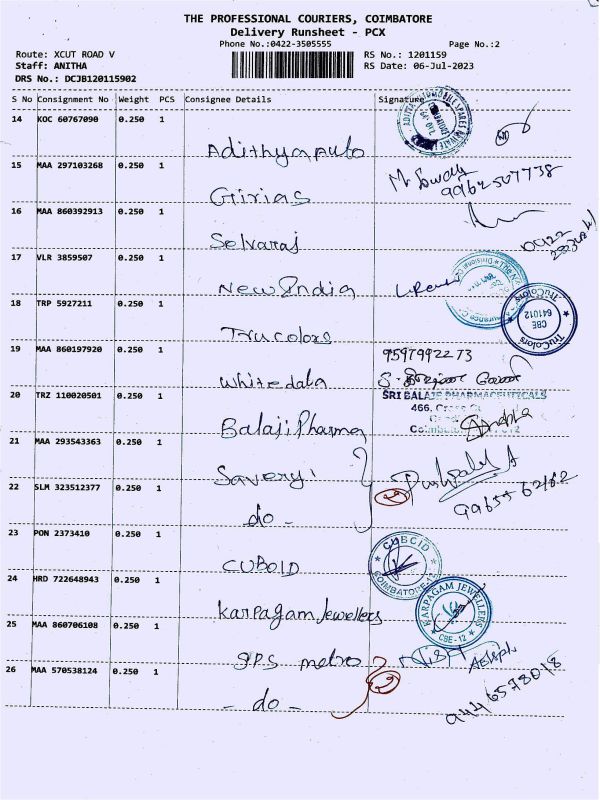 THE PROFESSIONAL COURIERS, COIMBATORE
Delivery Runsheet - PCX
Phone No.:0422-3505555 Page No.:2
Route: XCUT ROAD V RS No.: 1201159
Staff: ANITHA RS Date: 06-Jul-2023
DRS No.: DCJB120115902
S No Consignment No Weight PCS Consignee Details Signature
14 KOC 60767090 0.250 1
Adithya auto
15 MAA 297103268 0.250 1
Girias
16 MAA 860392913 0.250 1
Selvaraj
17 VLR 3859507 0.250 1
New India
18 TRP 5927211 0.250 1
Trucolors
TruColors
CBE
641012
TruColors
19 MAA 860197920 0.250 1
9597992273
whitedata
20 TRZ 110020501 0.250 1
SRI BALAJE PHARMACEUTICALS
466,
Balaji Pharma
21 MAA 293543363 0.250 1
Savory
22 SLM 323512377 0.250 1
2
- do -
23 PON 2373410 0.250 1
CUBOID
COIMBATORE-12
24 HRD 722648943 0.250 1
Karpagam Jewellers
KARPAGAM JEWELLERS
CBE-12
25 MAA 860706108 0.250 1
metro
26 MAA 570538124 0.250 1
2
- do -
9446578018